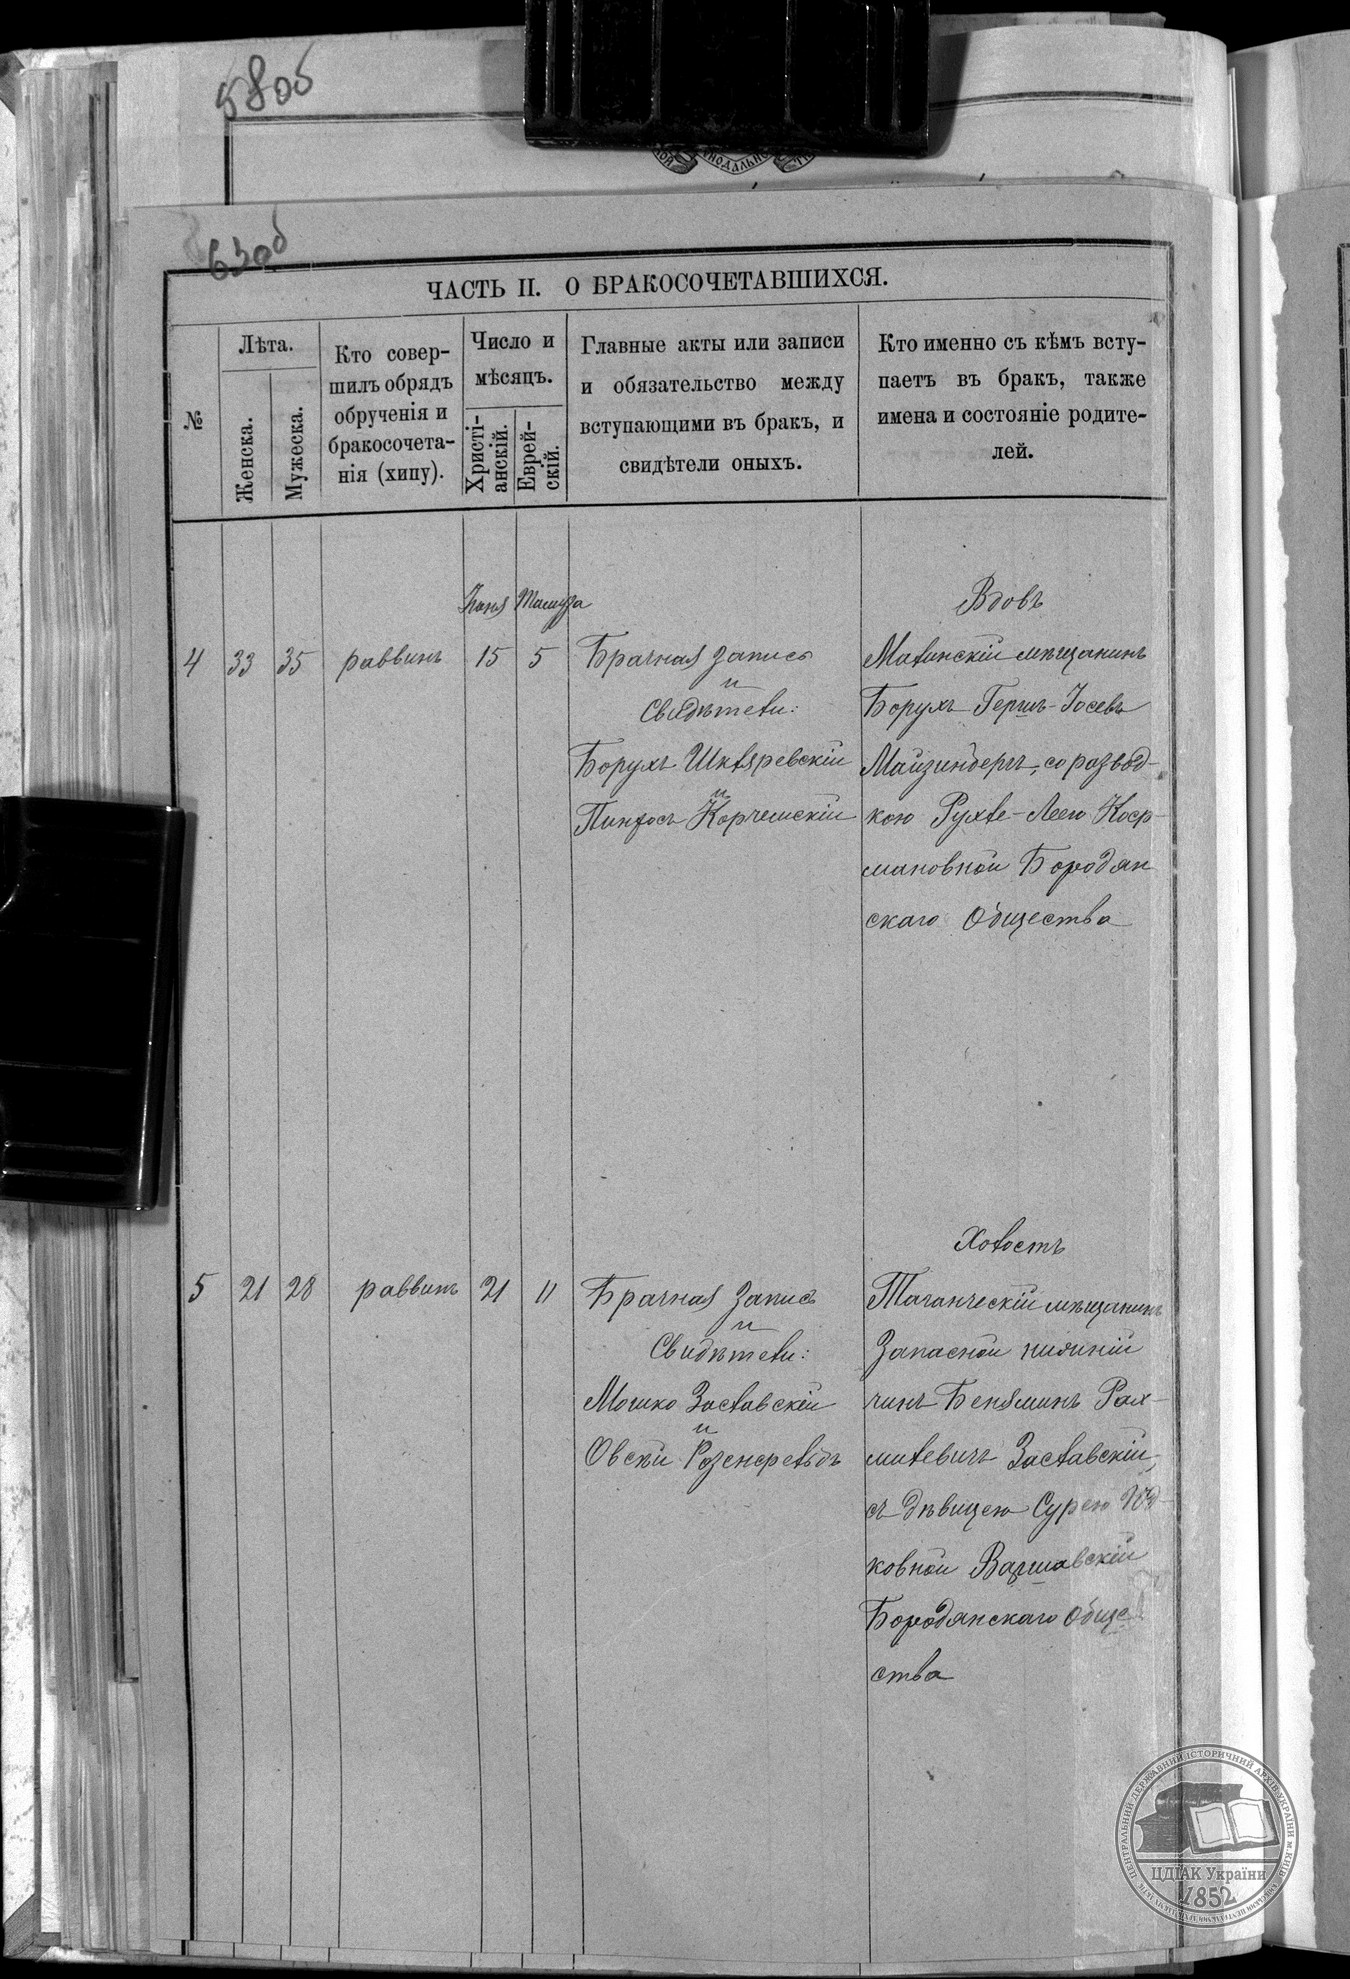 58об
63об
ЧАСТЬ II. О БРАКОСОЧЕТАВШИХСЯ.
№
Лѣта.
Женска.
Мужеска.
Кто совер-
шилъ обрядъ
обрученія и
бракосочета-
нія (хипу).
Число и
мѣсяцъ.
Христі-
анскій.
Еврей-
скій.
Главные акты или записи
и обязательство между
вступающими въ бракъ, и
свидѣтели оныхъ.
Кто именно съ кѣмъ всту-
паетъ въ бракъ, также
имена и состояніе родите-
лей.
Тамуза
Вдовъ
4 33 35 раввинъ 15 5 Брачная запись
и
Свидѣтели:
Борухъ Шкляревскій
и
Пинхосъ Корчемскій
Малинскій мѣщанинъ
Борухъ Гершъ-Іосевъ
со развод-
кою Рухле-Леею
мановной Бородян
скаго Общества
Холостъ
5 21 28 раввинъ 21 11 Брачная запись
и
Свидѣтели:
Мошко Заславскій
и
Овсій Розенфельдъ
Таганческій мѣщанинъ
Запасной нижній
чинъ Беняминъ Рах-
милевичъ Заславскій,
съ дѣвицею Сурою Юд-
ковной Варшавскій
Бородянскаго Обще
ства
ЦЕНТРАЛЬНИЙ ДЕРЖАВНИЙ ІСТОРИЧНИЙ АРХІВ УКРАЇНИ М. КИЇВ
ЦДІАК України
1852